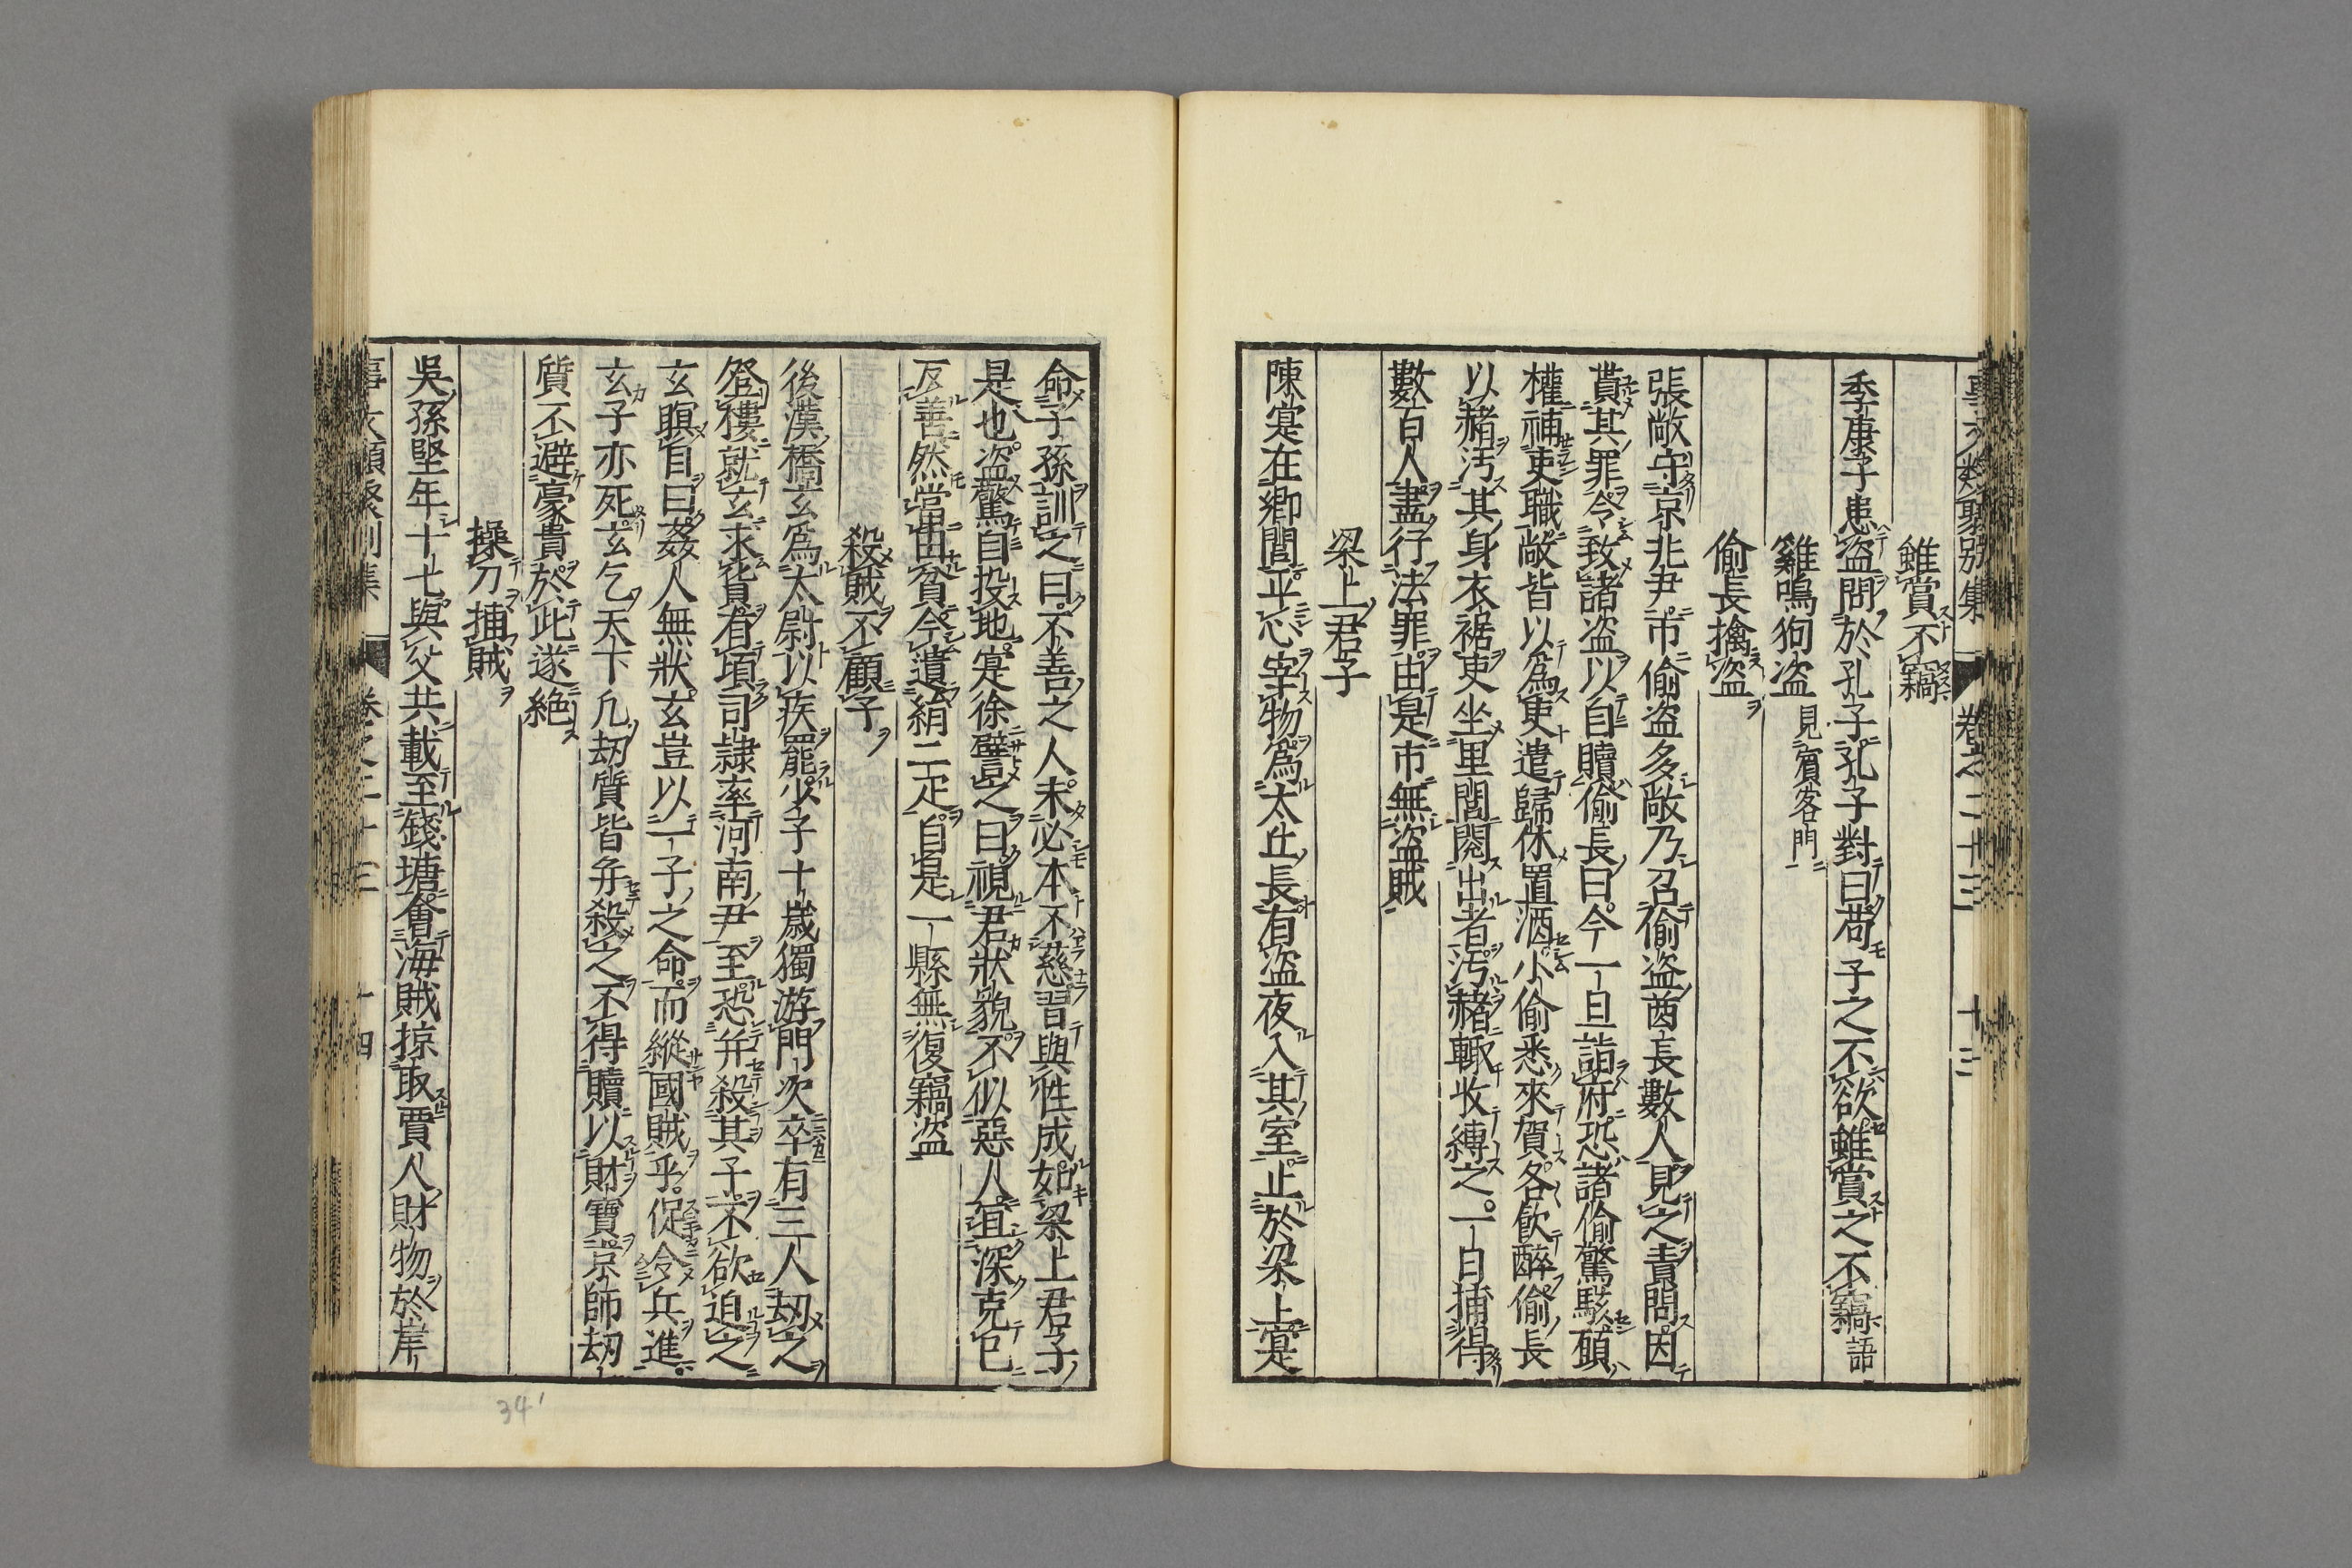 事文類聚別集 卷之二十三 十三
雖賞不竊
季康子患盜問於孔子孔子對曰苟子之不欲雖賞之不竊語
雞鳴狗盜見賓客門
偷長擒盜
張敞守京兆尹市偷盜多敞乃召偷盜酋長數人見之責問因
貰其罪令致諸盜以自贖偷長曰今一旦詣府恐諸偷驚駭願
權補吏職敞皆以為吏遣歸休置酒小偷悉來賀各飲醉偷長
以赭汚其身衣裾吏坐里閭閱出者汚赭輙收縛之一日捕得
數百人盡行法罪由是市無盜賊
梁上君子
陳寔在鄉閭平心宰物為太丘長有盜夜入其室止於梁上寔
命子孫訓之曰不善之人未必本不慈習與性成如梁上君子
是也盜驚自投地寔徐譬之曰視君狀貌不似惡人宜深克己
反善然當由貧今遺絹二疋自是一縣無復竊盜
殺賊不顧子
後漢橋玄為太尉以疾罷少子十歲獨游門次卒有三人刼之
登樓就玄求貨有頃司隷率河南尹至恐并殺其子不欲迫之
玄瞋目曰姦人無狀玄豈以一子之命而縱國賊乎促令兵進
玄子亦死玄乞天下凡刼質皆并殺之不得贖以財寶京師刼
質不避豪貴於此遂絕
操刀捕賊
吳孫堅年十七與父共載至錢塘會海賊掠取賈人財物於岸
事文類聚別集 卷之二十三 十四
34'